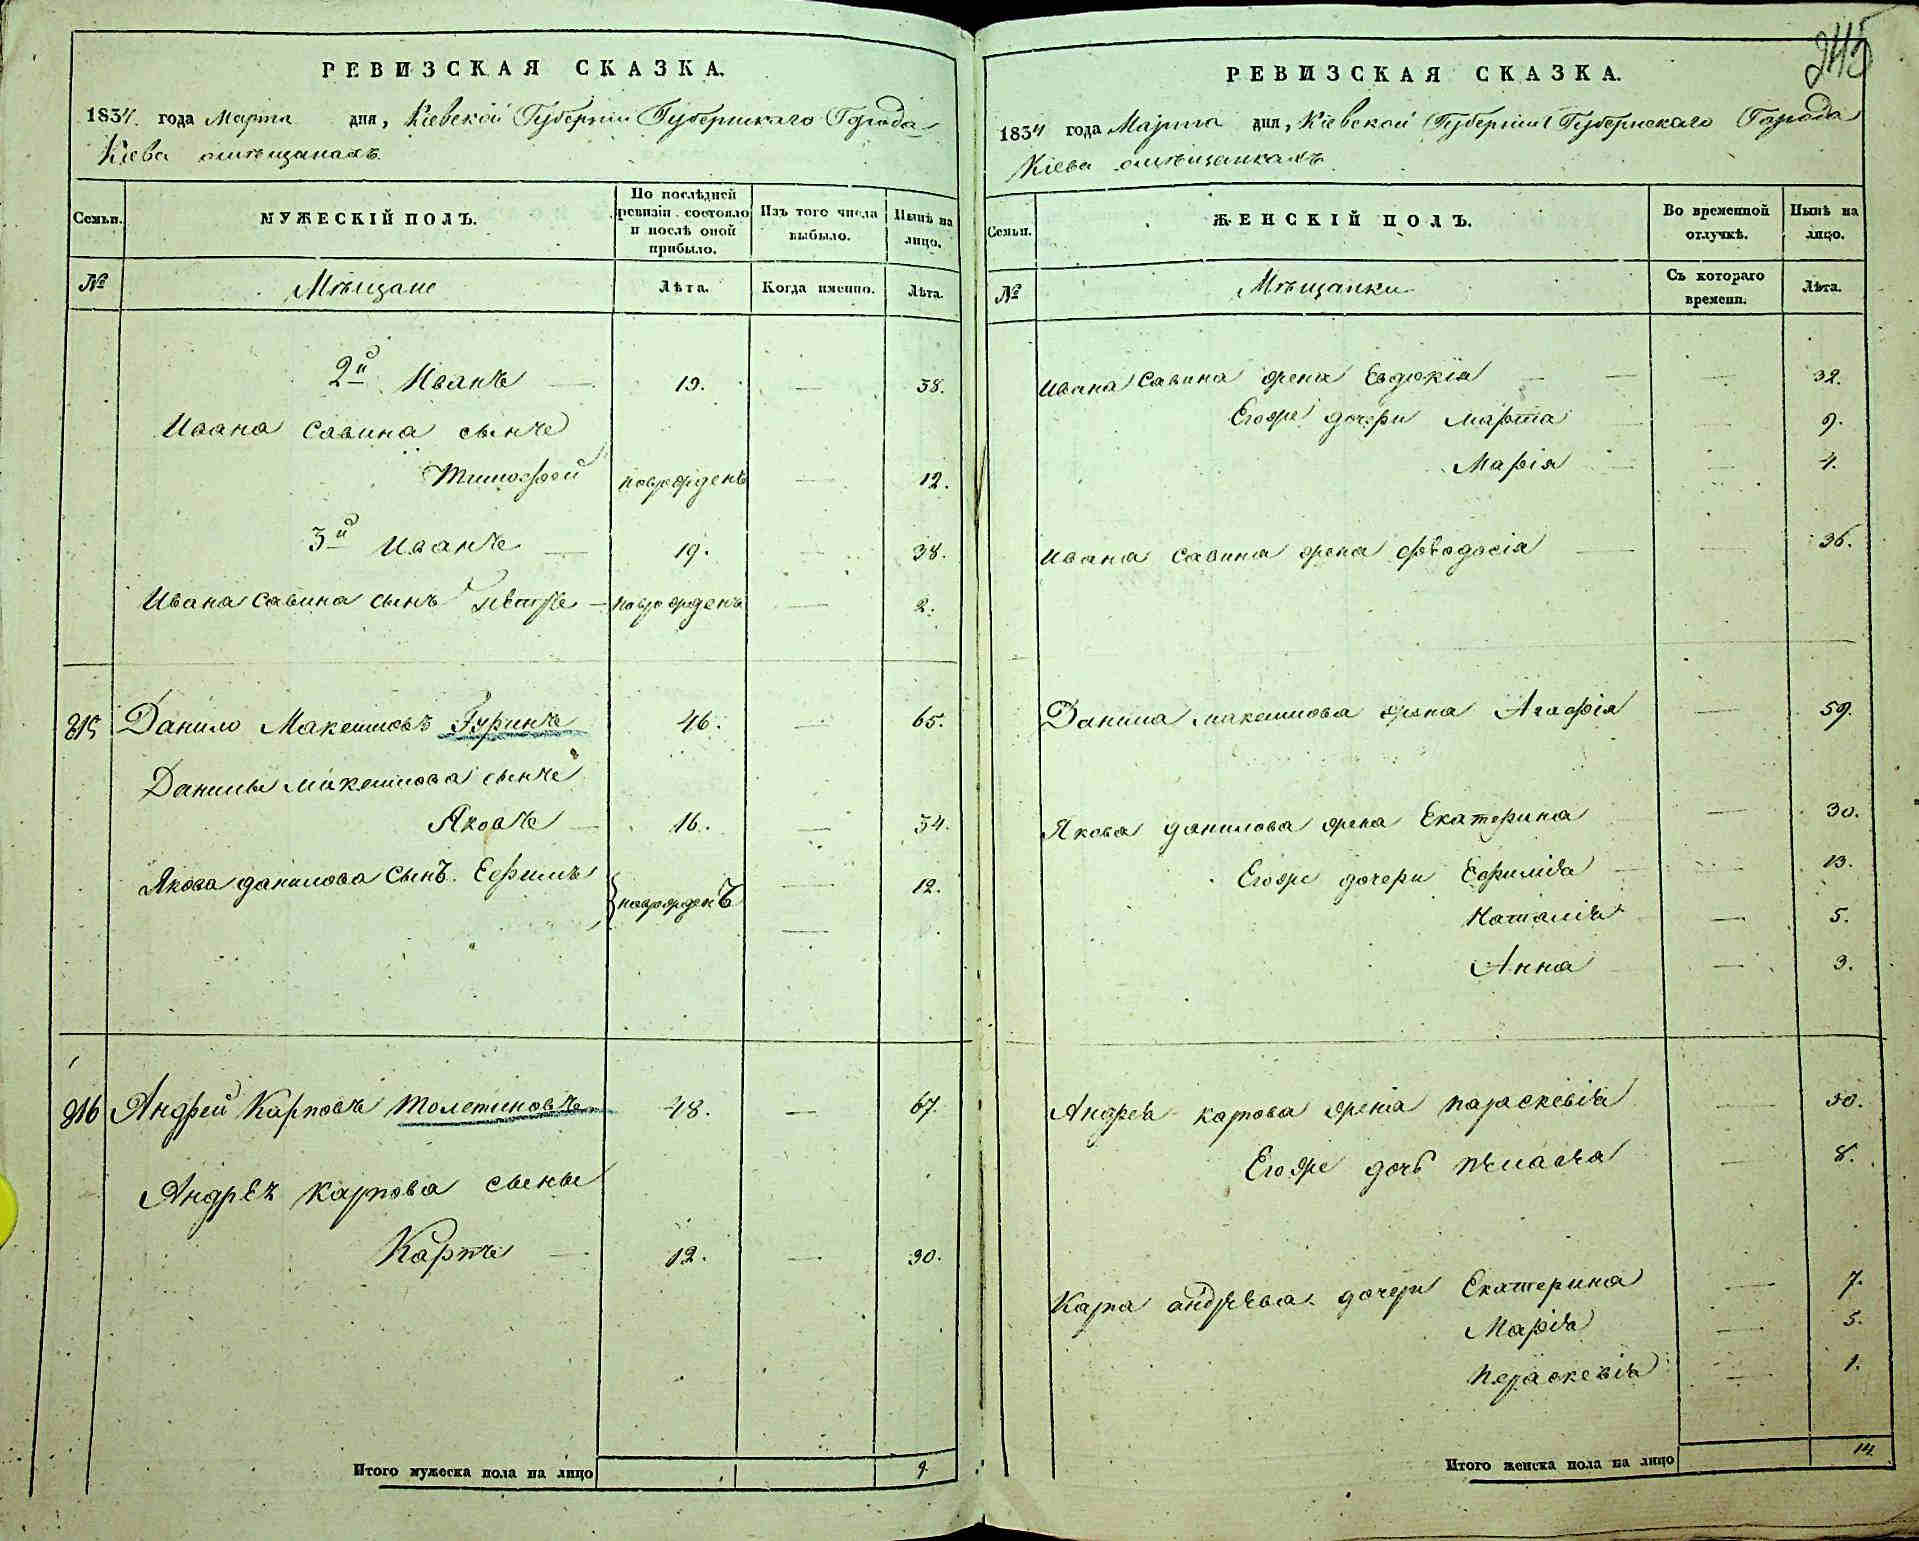 РЕВИЗСКАЯ СКАЗКА.
1834. года Марта дня, Кіевской Губерніи Губернскаго Города
Кіева омѣщанахъ.
Семьи.
МУЖЕСКІЙ ПОЛЪ.
По послѣдней ревизіи состояло и послѣ оной прибыло.
Изъ того числа выбыло.
Нынѣ на лицо.
№
Мѣщане
Лѣта.
Когда именно.
Лѣта.
2й Иванъ — 19. — 38.
Ивана Савина сынъ
Тимофей новорожденъ — 12.
3й Иванъ — 19. — 38.
Ивана Савина сынъ Петръ — новорожденъ — 2.
815 Данило Максимовъ Гуринъ 46. — 65.
Данилы Максимова сынъ
Яковъ — 16. — 34.
Якова данилова сынъ Ефимъ новорожденъ — 12.
—
816 Андрей Карповъ 48. — 67.
Андрея Карпова сыны
Карпъ — 12. — 30.
Итого мужеска пола на лицо 9
245
РЕВИЗСКАЯ СКАЗКА.
1834 года Марта дня, Кіевской Губерніи Губернскаго Города
Кіева омѣщанкахъ
Семьи.
ЖЕНСКІЙ ПОЛЪ.
Во временной отлучкѣ.
Нынѣ на лицо.
№
Мѣщанки
Съ котораго времени.
Лѣта.
Ивана Савина жена Евдокія — — — 32.
Егоже дочери Марта — — 9.
Марія — — 4.
Ивана Савина жена Феодосія — — 36.
Данила максимова жена Агафія — 59.
Якова данилова жена Екатерина — 30.
Егоже дочери Ефимія — — 13.
Наталія — 5.
Анна — — 3.
Андрея карпова жена параскевія — 50.
Егоже дочь — 8.
Карпа андрѣева дочери Екатерина — 7.
Марія — 5.
параскевія — 1.
Итого женска пола на лицо 14